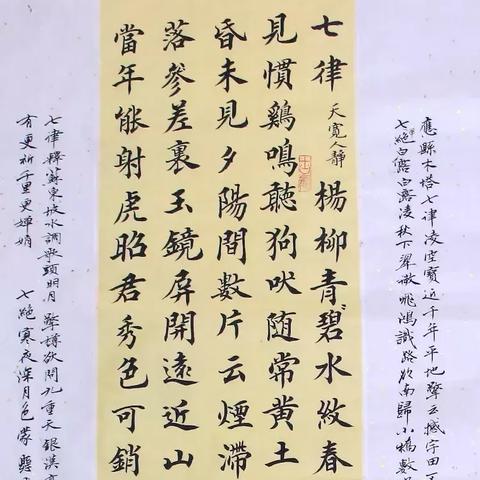 應縣木塔七律凌空寶近千年平地擎云撼宇田
七絶白露白露凌秋下翠微飛鴻識路欲南歸小橋數
七律 天寬人靜 楊柳青碧水紋春
見慣鷄鳴聽狗吠随常黄土
昏未見夕陽間數片云煙滯
落參差裏玉鏡屏開遠近山
當年能射虎昭君秀色可銷
七律釋蘇東坡水調歌頭明月 擎樽欲問九重天銀漢
有更祈千里更嬋娟 七絶寒夜深月色蒙懸